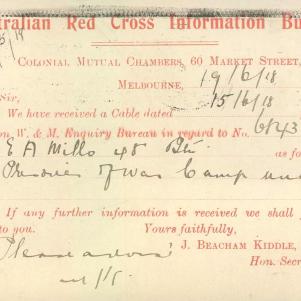 ralian Red Cross Information Bu
Colonial Mutual Chambers, 60 Market Street,
Melbourne, 19/6/18
Sir,
We have received a Cable dated 15/6/18
on, W. & M. Enquiry Bureau in regard to No. 6843
E A Mills 48 Btn
as fo
Prisoner of War Camp
If any further information is received we shall f
to you. Yours faithfully,
J. BEACHAM KIDDLE,
Hon. Secr
Please advise